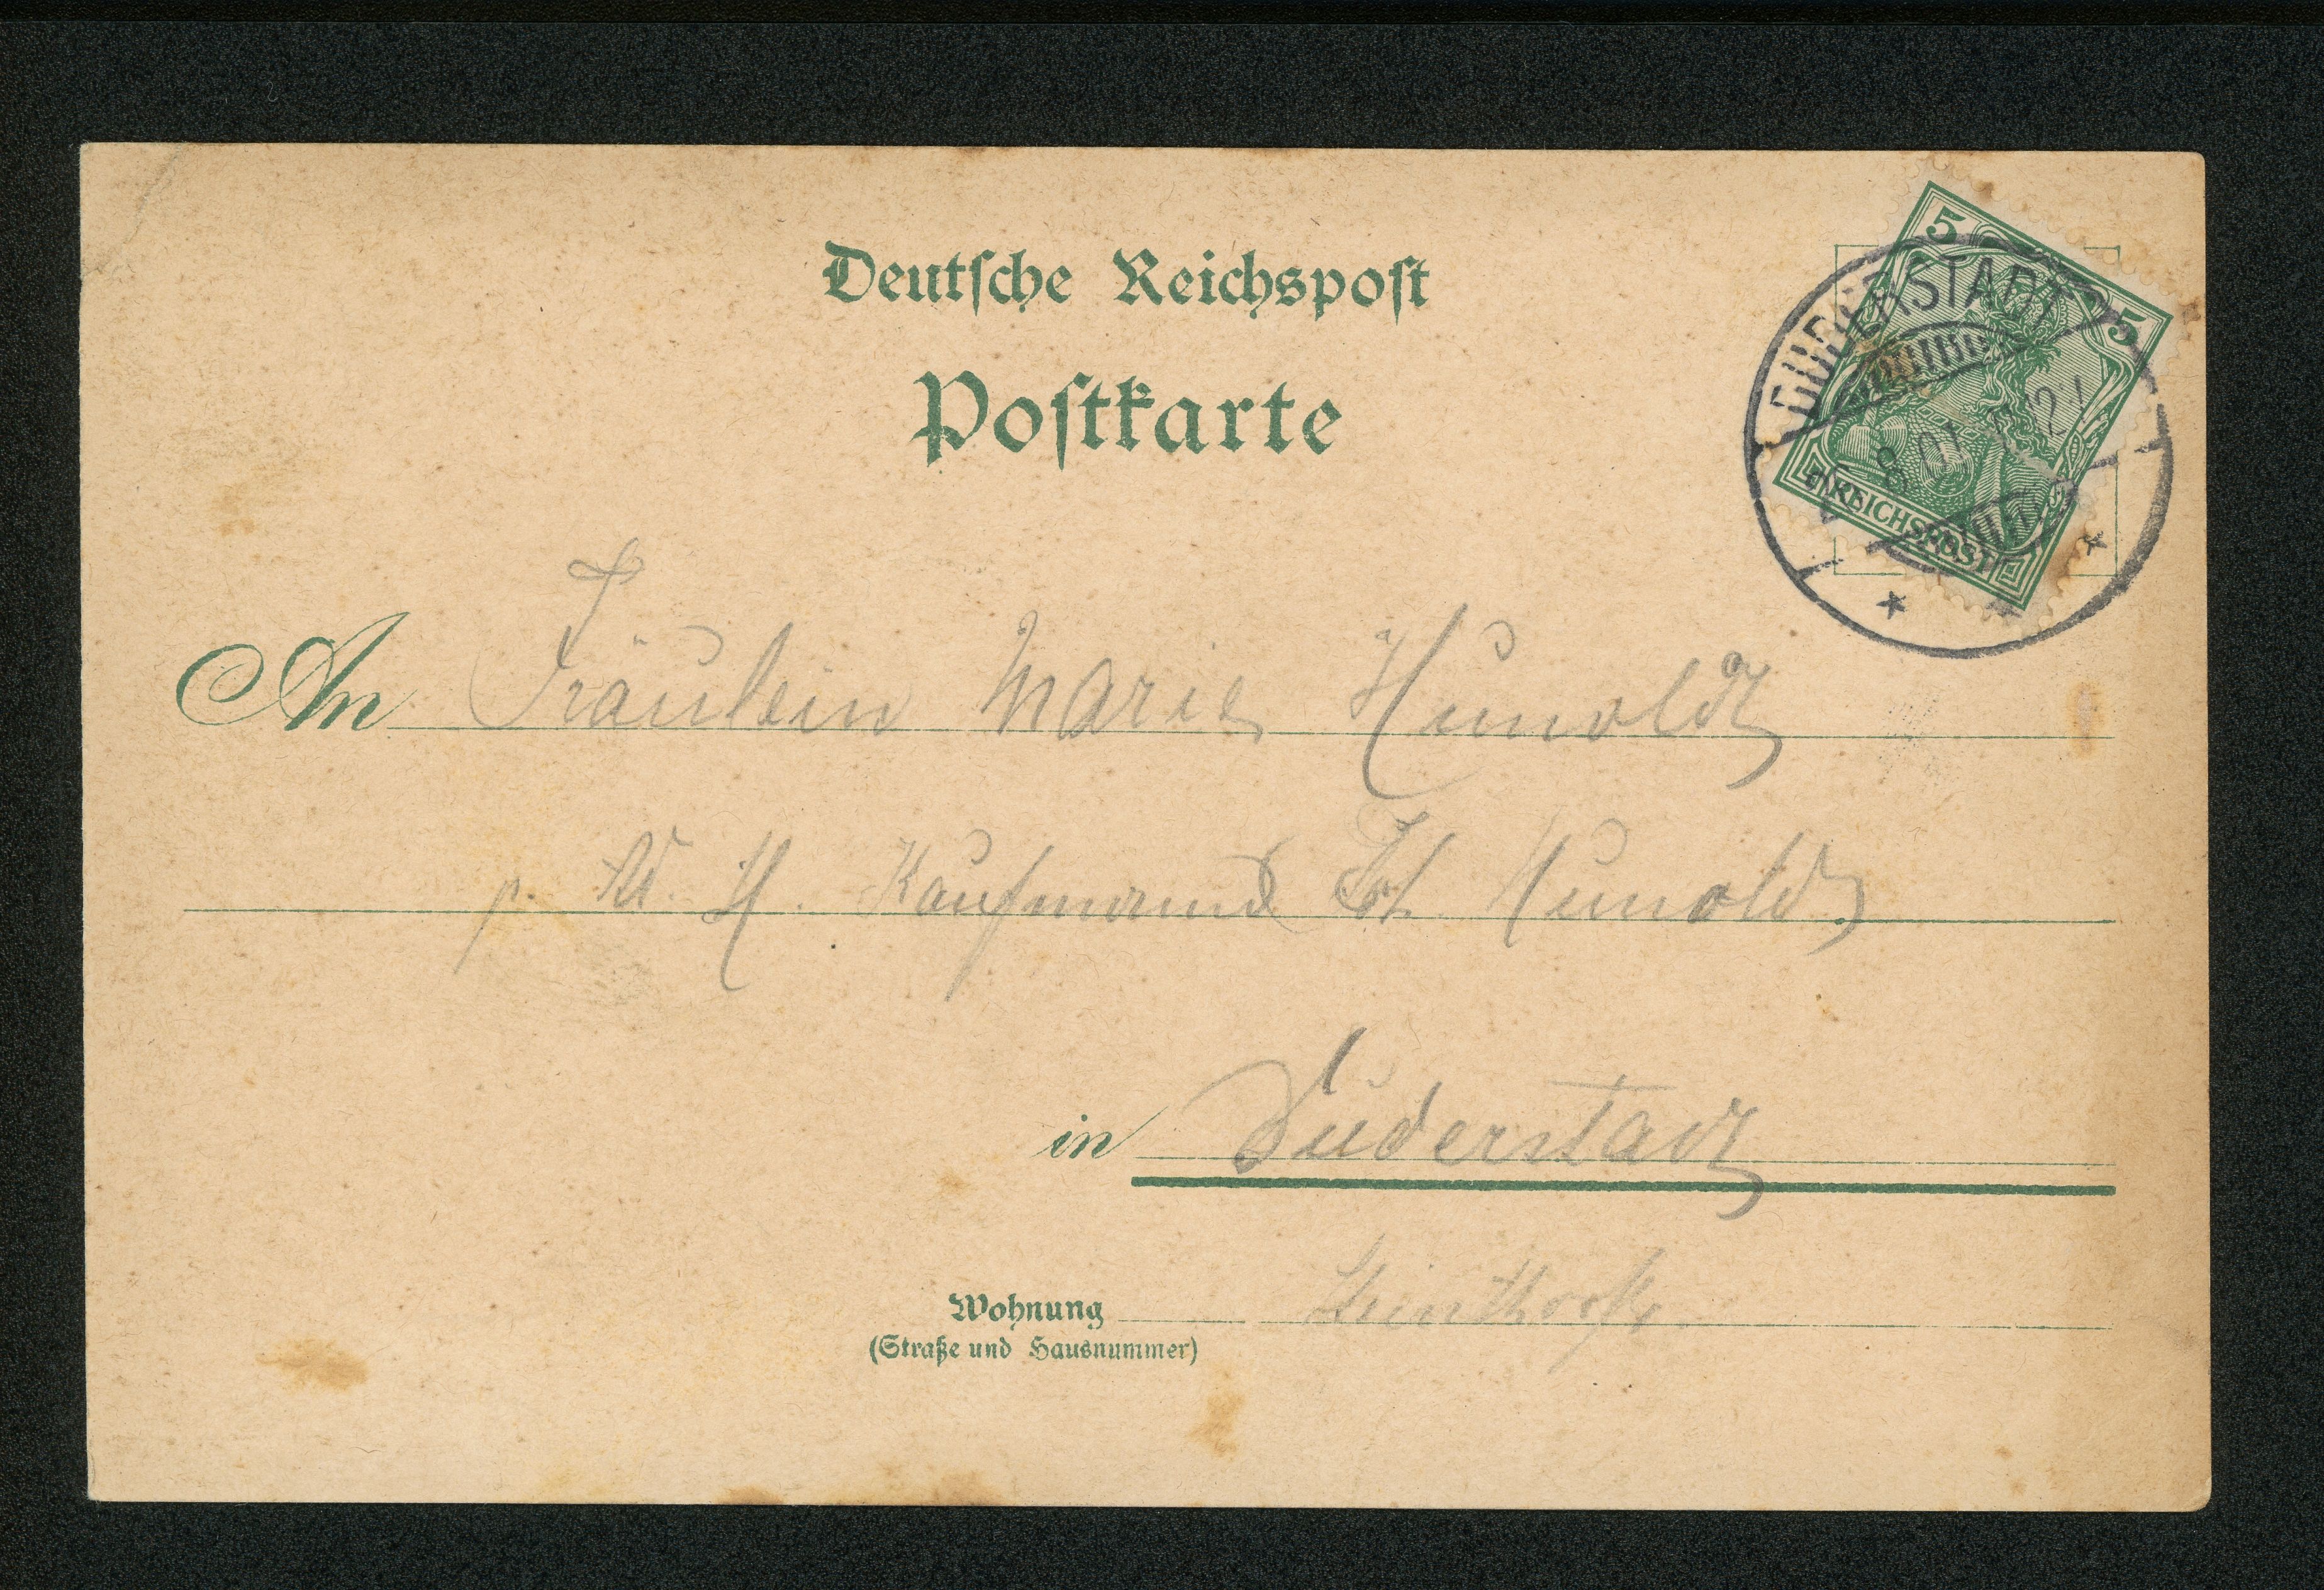 Deutsche Reichspost
Postkarte
5
5
REICHSPOST
DUDERSTADT
8 01
An Fräulein Marie Hunold
p. Kaufmann Hunold
in Duderstadt
Wohnung
(Straße und Hausnummer)